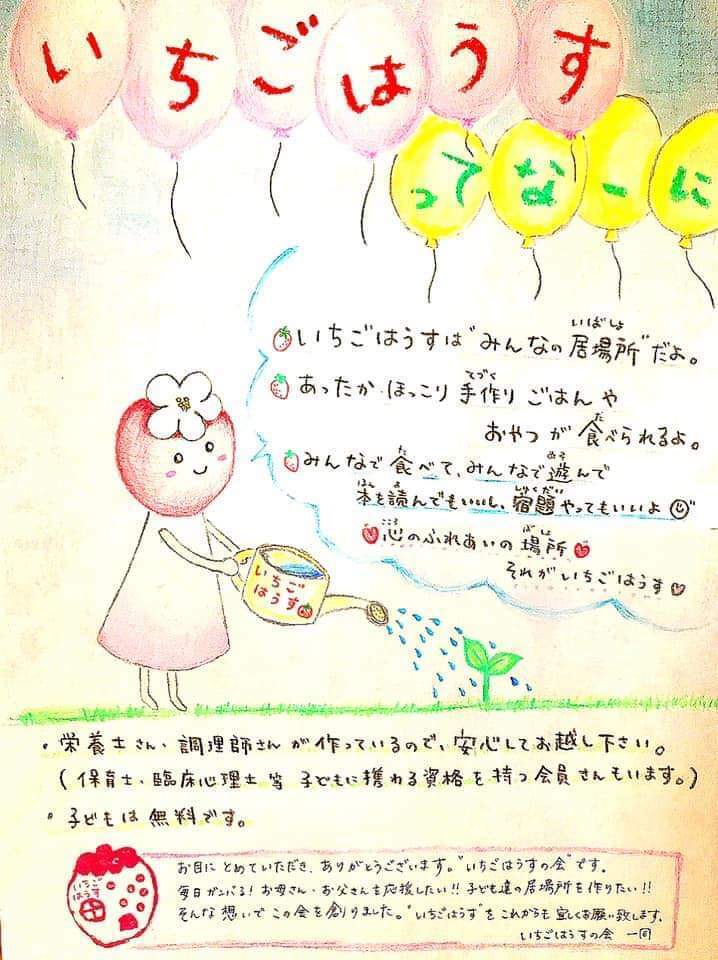 いちごはうす
ってなーに
いちごはうすは"みんなの居場所"だよ。
いばしょ
あったか ほっこり 手作り ごはん や
てづく
おやつ が 食べられるよ。
た
みんなで 食べて、みんなで遊んで
た
あそ
本を読んでもいいし、宿題やってもいいよ
ほん
よ
しゅくだい
心のふれあいの場所
こころ
ばしょ
それがいちごはうす
いちご
はうす
・栄養士さん・調理師さん が 作っているので、安心してお越し下さい。
(保育士・臨床心理士 等 子どもに携わる資格を持つ会員さんもいます。)
・子どもは 無料です。
いちご
はうす
お目に とめていただき、ありがとうございます。"いちごはうすの会"です。
毎日ガンバる! お母さん・お父さんを応援したい!! 子ども達の居場所を作りたい!!
そんな 想いで この会を創りました。"いちごはうす"を これからも 宜しくお願い致します。
いちごはうすの会 一同